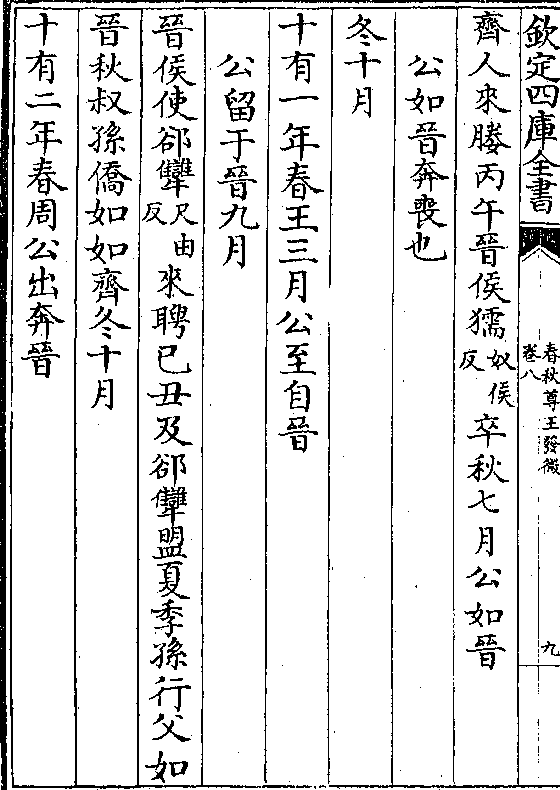 欽定四庫全書
春秋尊王發微
卷八
九
齊人來媵丙午晉侯獳奴侯反卒秋七月公如晉
公如晉奔喪也
冬十月
十有一年春王三月公至自晉
公留于晉九月
晉侯使郤犫尺由反來聘己丑及郤犫盟夏季孫行父如
晉秋叔孫僑如如齊冬十月
十有二年春周公出奔晉